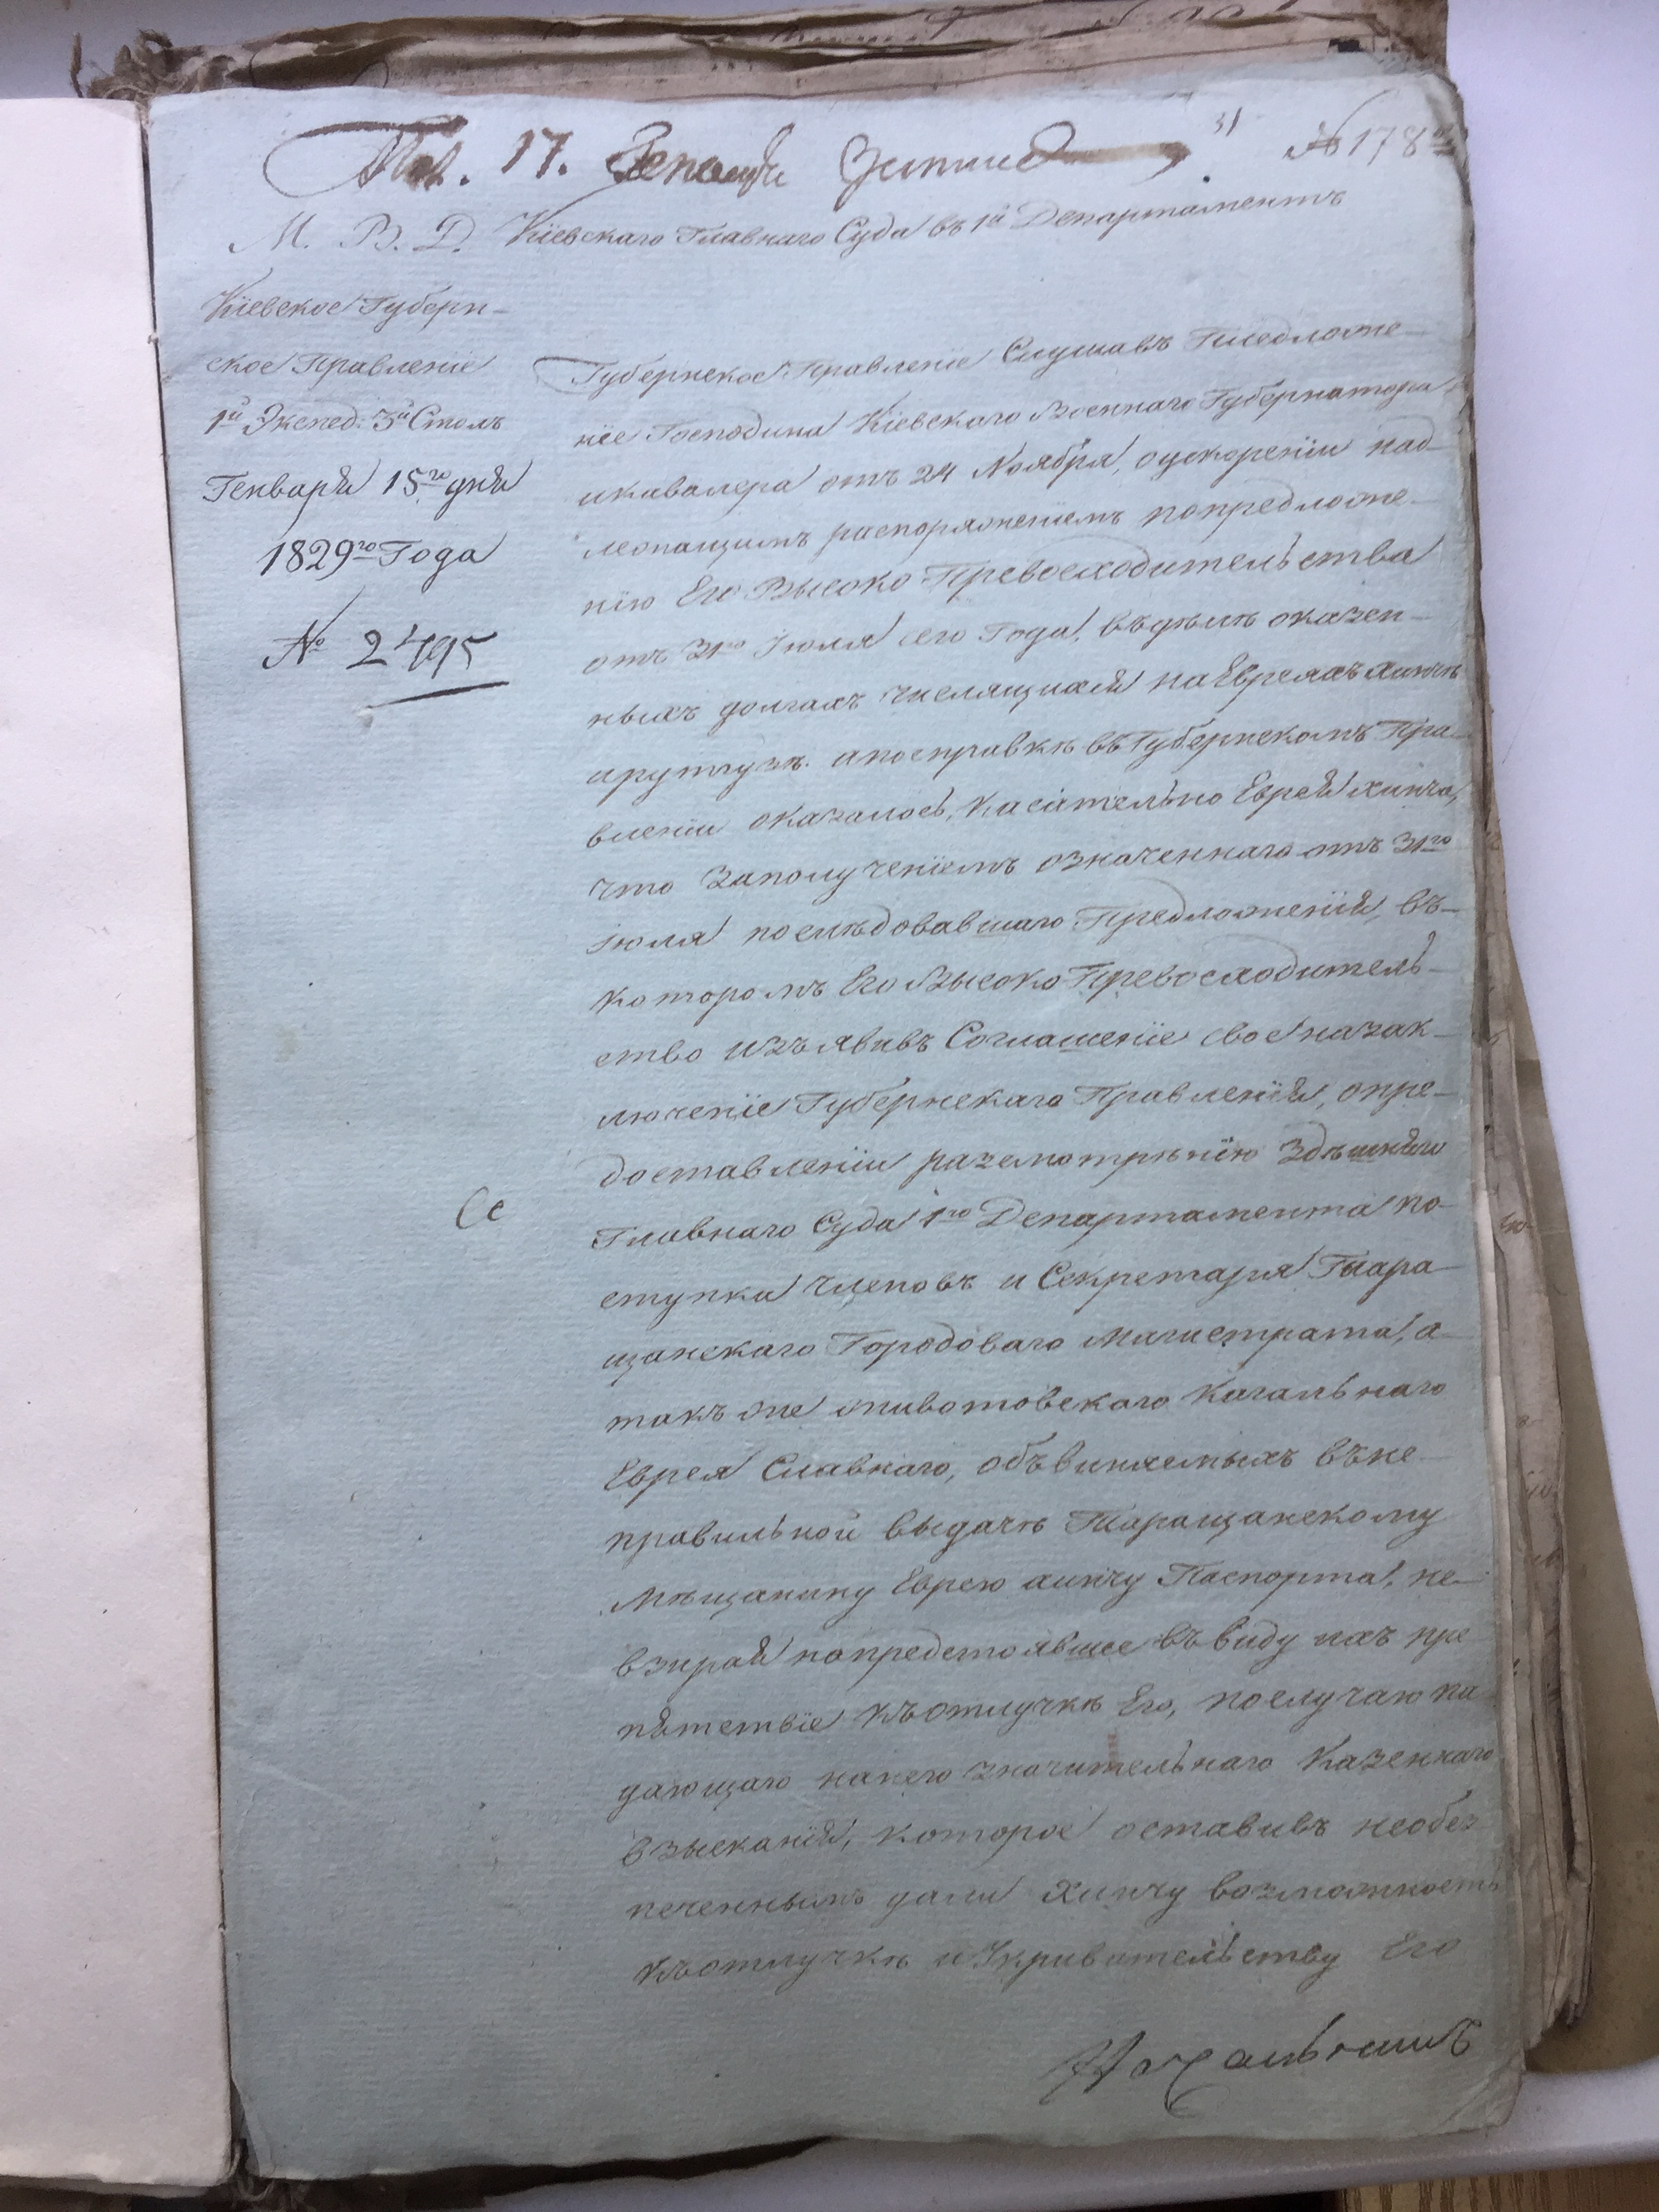 17. Генваря
31
№ 178
М. В. Д.
Кіевскаго Главнаго Суда въ 1й Департаментъ
Кіевское Губерн-
ское Правленіе
1й Экспед: 3й Столъ
Генваря 15го дня
1829го Года
№ 2495
Губернское Правленіе Слушавъ Предложе-
ніе Господина Кіевскаго Военнаго Губернатора,
икавалера отъ 24 Ноября, оускореніи над-
лежащимъ распоряженіемъ попредложе-
нію Его Высоко Превосходительства
отъ 31го Іюля сего Года, въдѣлѣ оказен-
ныхъ долгахъ числящихся наЕвреяхъ Хинчѣ
ипосправкѣ въГубернскомъ Пра-
вленіи оказалось, Касательно Еврея Хинча,
что Заполученіемъ означеннаго отъ 31го
Іюля последовавшаго Предложенія, въ-
которомъ Его Высоко Превосходитель-
ство изъявивъ Соглашеніе свое назак-
люченіе Губернскаго Правленія, опре-
доставленіи разсмотрѣнію Здѣшняго
Се
Главнаго Суда 1го Департамента по-
ступки Членовъ и Секретаря Тара-
щанскаго Городоваго Магистрата, а-
такъ же животовскаго Кагальнаго
Еврея Славнаго, объвиняемыхъ въне-
правильной выдачѣ Таращанскому
Мѣщанину Еврею хинчу Паспорта, не-
взирая напредстоявшее въвиду ихъ пре
пятствіе къотлучкѣ Его, послучаю па-
дающаго нанего значительнаго Казеннаго
взысканія, которое оставивъ необез
печеннымъ дали Хинчу возможность
къотлучкѣ иУкривательству Его